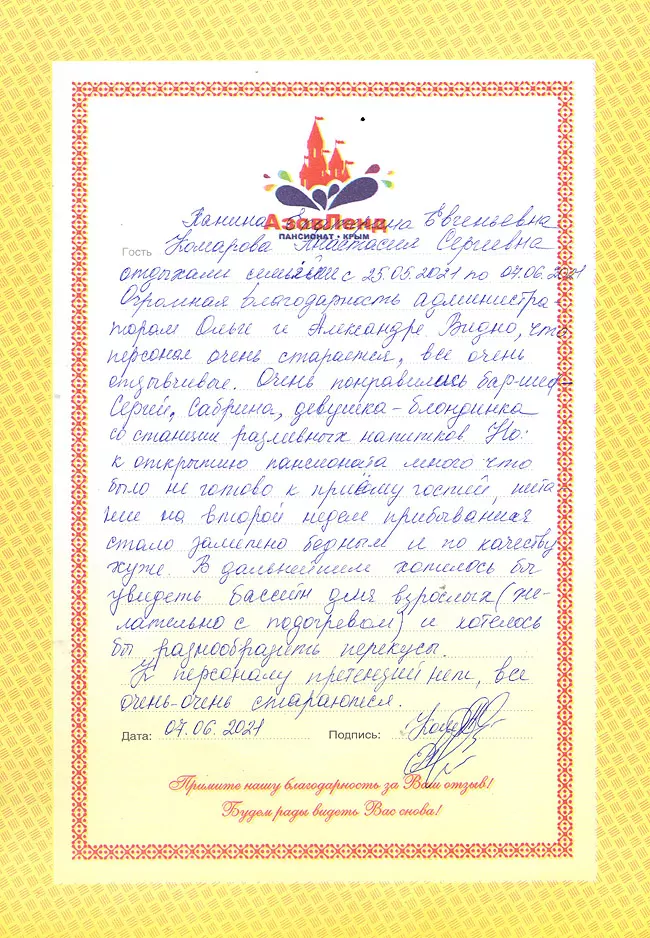 АзовЛенд
ПАНСИОНАТ • КРЫМ
Панина Екатерина Евгеньевна
Гость Комарова Анастасия Сергеевна
отдыхали семьёй с 25.05.2021 по 07.06.2021
Огромная благодарность администра-
торам Ольге и Александре. Видно, что
персонал очень старается, все очень
отзывчивые. Очень понравились бар-шеф-
Сергей, Сабрина, девушка-блондинка
со станции разливных напитков. Но:
к открытию пансионата много что
было не готово к приёму гостей, пита
ние на второй недели прибывания
стало заметно бедным и по качеству
хуже. В дальнейшем хотелось бы
увидеть бассейн для взрослых (же-
лательно с подогревом) и хотелось
бы разнообразить перекусы.
К персоналу претензий нет, все
очень-очень стараются.
Дата: 07.06.2021 Подпись:
Примите нашу благодарность за Ваш отзыв!
Будем рады видеть Вас снова!